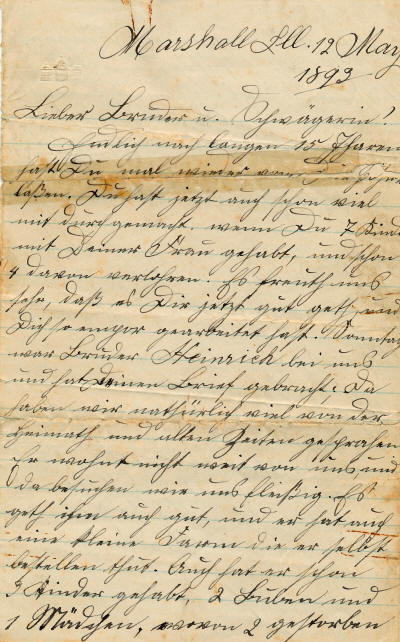 Marshall Ill. 12 May
1893
Lieber Bruder u. Schwägerin!
Endlich nach langen 15 Jharen
hast Du mal wieder von Dir hören
laßen. Du hast jetzt auch schon viel
mit durchgemacht, wenn Du 7 Kind
mit Deiner Frau gehabt, und schon
4 davon verlohren. Es freuth uns
sehr, daß es Dir jetzt gut geth, und
Dich so empor gearbeitet hast. Sonntag
war Bruder Heinrich bei uns
und hat Deinen Brief gebracht. Da
haben wir nathürlich viel von der
Heimath und alten Zeiten gesprochen
Er wohnt nicht weit von uns und
da besuchen wir uns fleißig. Es
geth ihm auch gut, und er hat auch
eine kleine Farm die er selbst
bestellen thut. Auch hat er schon
3 Kinder gehabt, 2 Buben und
1 Mädchen, wovon 2 gestorben